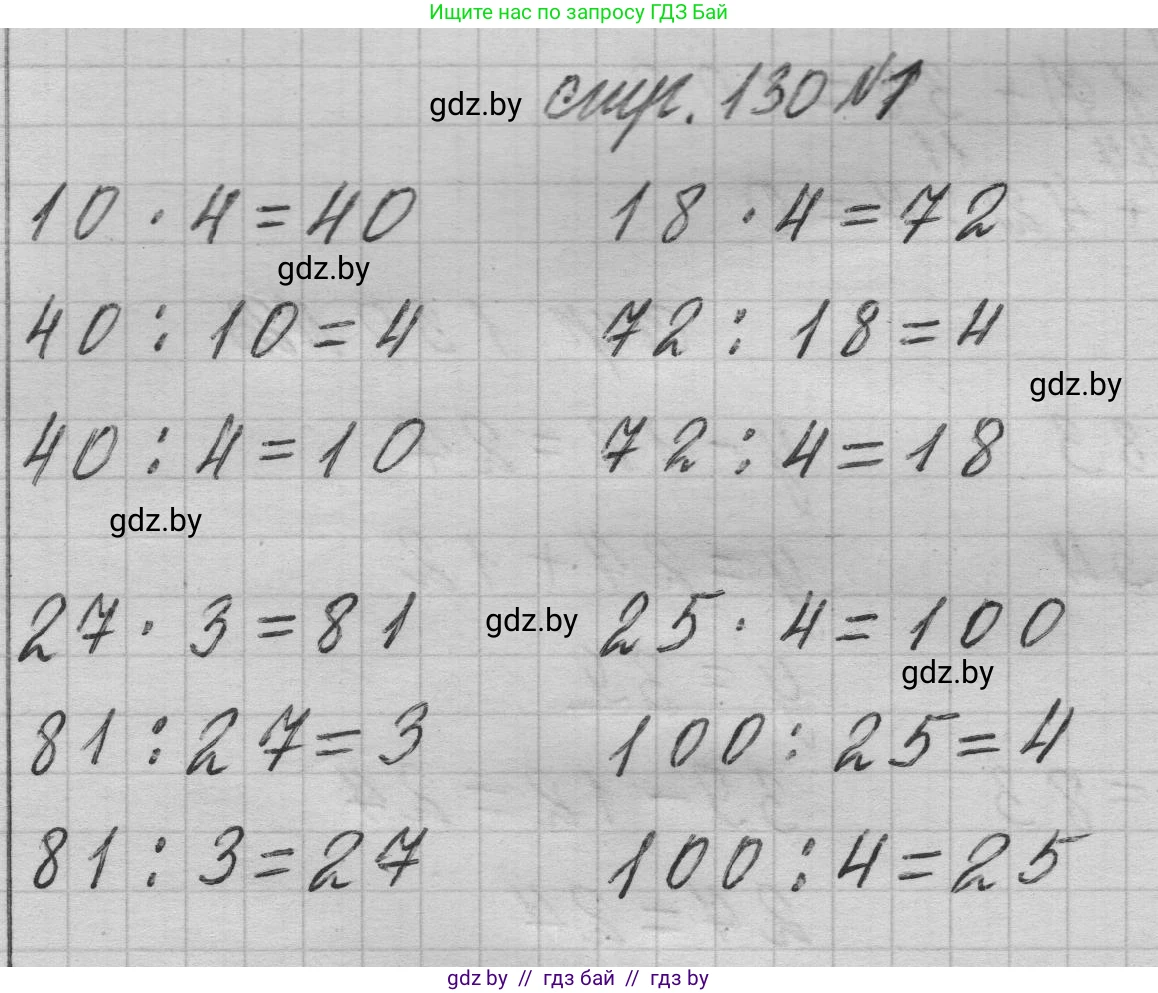 Ищите нас по запросу ГДЗ Бай
gdz.by стр. 130 №1
10 · 4 = 40 18 · 4 = 72
gdz.by
40 : 10 = 4 72 : 18 = 4
gdz.by
40 : 4 = 10 72 : 4 = 18
gdz.by
27 · 3 = 81 gdz.by 25 · 4 = 100
gdz.by
81 : 27 = 3 100 : 25 = 4
81 : 3 = 27 100 : 4 = 25
gdz by // гдз бай // гдз by